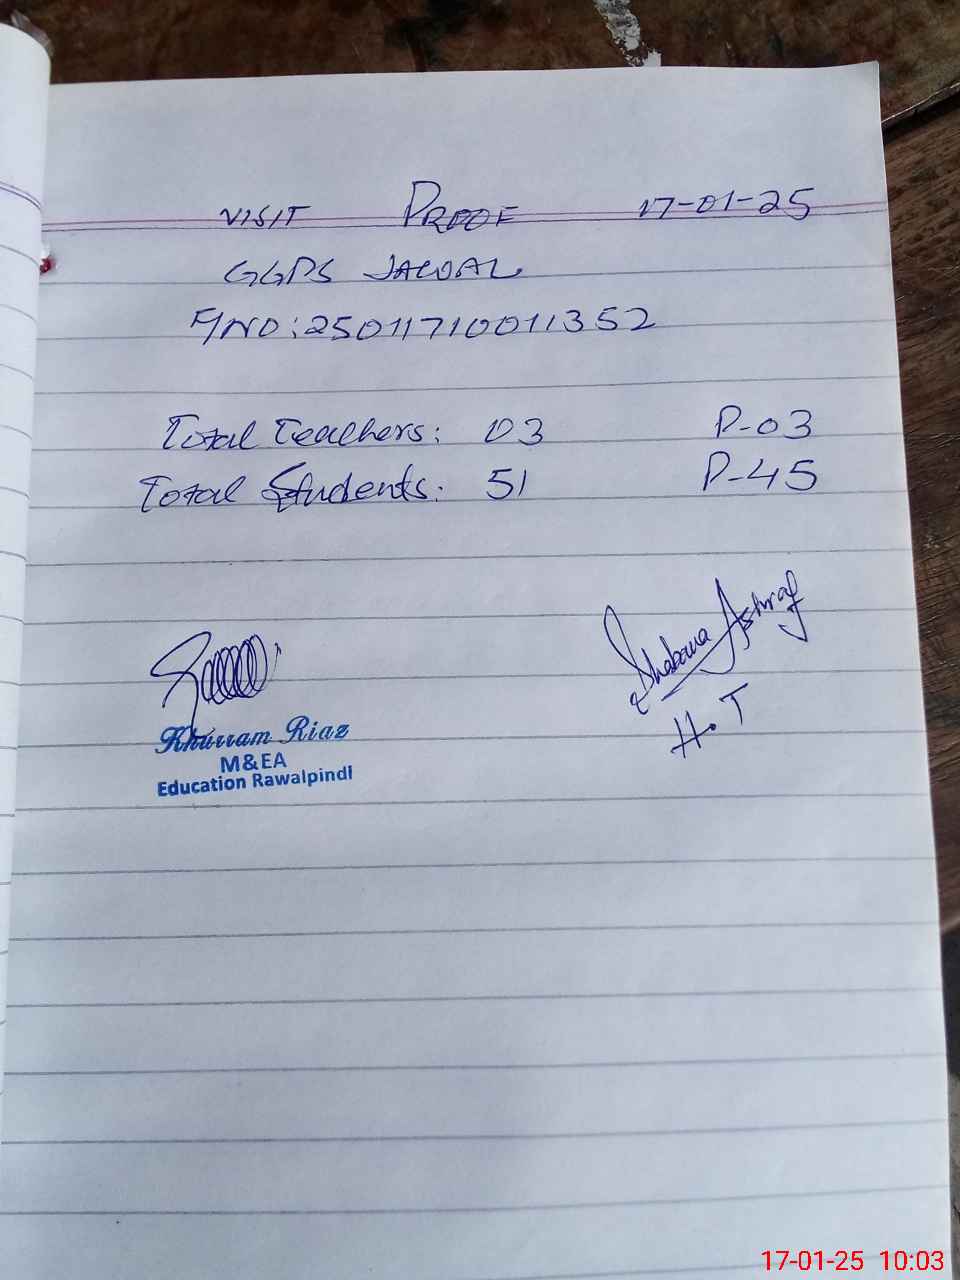 VISIT PROOF 17-01-25
GGPS JACOAL
F/NO: 25011710011352
Total Teachers: 03 P-03
Total Students: 51 P-45
Shabana Ashraf
H.T
Khurram Riaz
M&EA
Education Rawalpindi
17-01-25 10:03